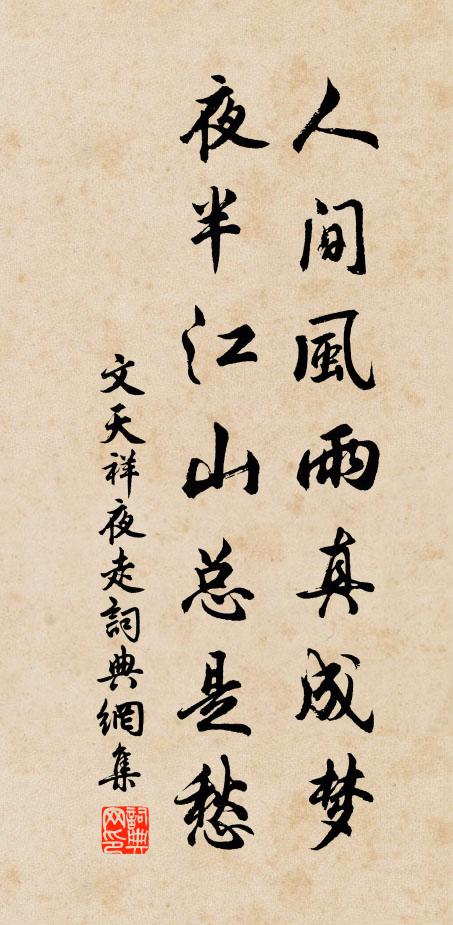 人间風雨真成梦
夜半江山总是愁
文天祥夜走詞典網集
詞典网印